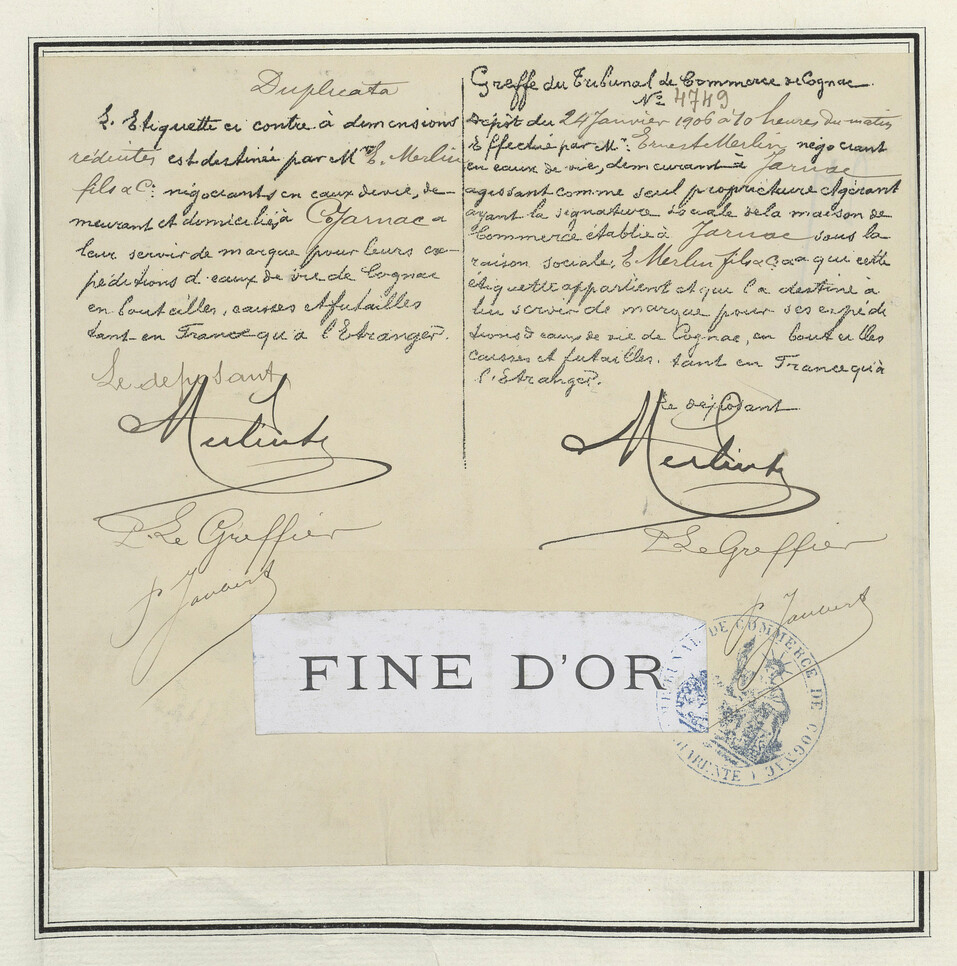 Duplicata
L'Etiquette ci contre à dimensions
réduites est destinée par Mr E. Merlin
fils & Cie négociants en eaux de vie, de-
meurant et domiciliés à Jarnac a
leur servir de marque pour leurs ex-
péditions d'eaux de vie de Cognac
en bouteilles, caisses et futailles
tant en France qu'à l'Etranger.
Le déposant
P. Le Greffier
P Jaubert
Greffe du Tribunal de Commerce de Cognac
No 4749
Dépôt du 24 Janvier 1906 à 10 heures du matin
Effectué par Mr Ernest Merlin négociant
en eaux de vie, demeurant à Jarnac
agissant comme seul propriétaire et gérant
ayant la signature sociale de la maison de
Commerce établie à Jarnac sous la
raison sociale, E Merlin fils & Cie qui cette
étiquette appartient et qui l'a destine a
lui servir de marque pour ses expédi
tions d'eaux de vie de Cognac, en bouteilles
caisses et futailles. tant en France qu'à
l'Etranger.
Le déposant
P Le Greffier
P Jaubert
FINE D'OR
TRIBUNAL DE COMMERCE DE COGNAC
CHARENTE